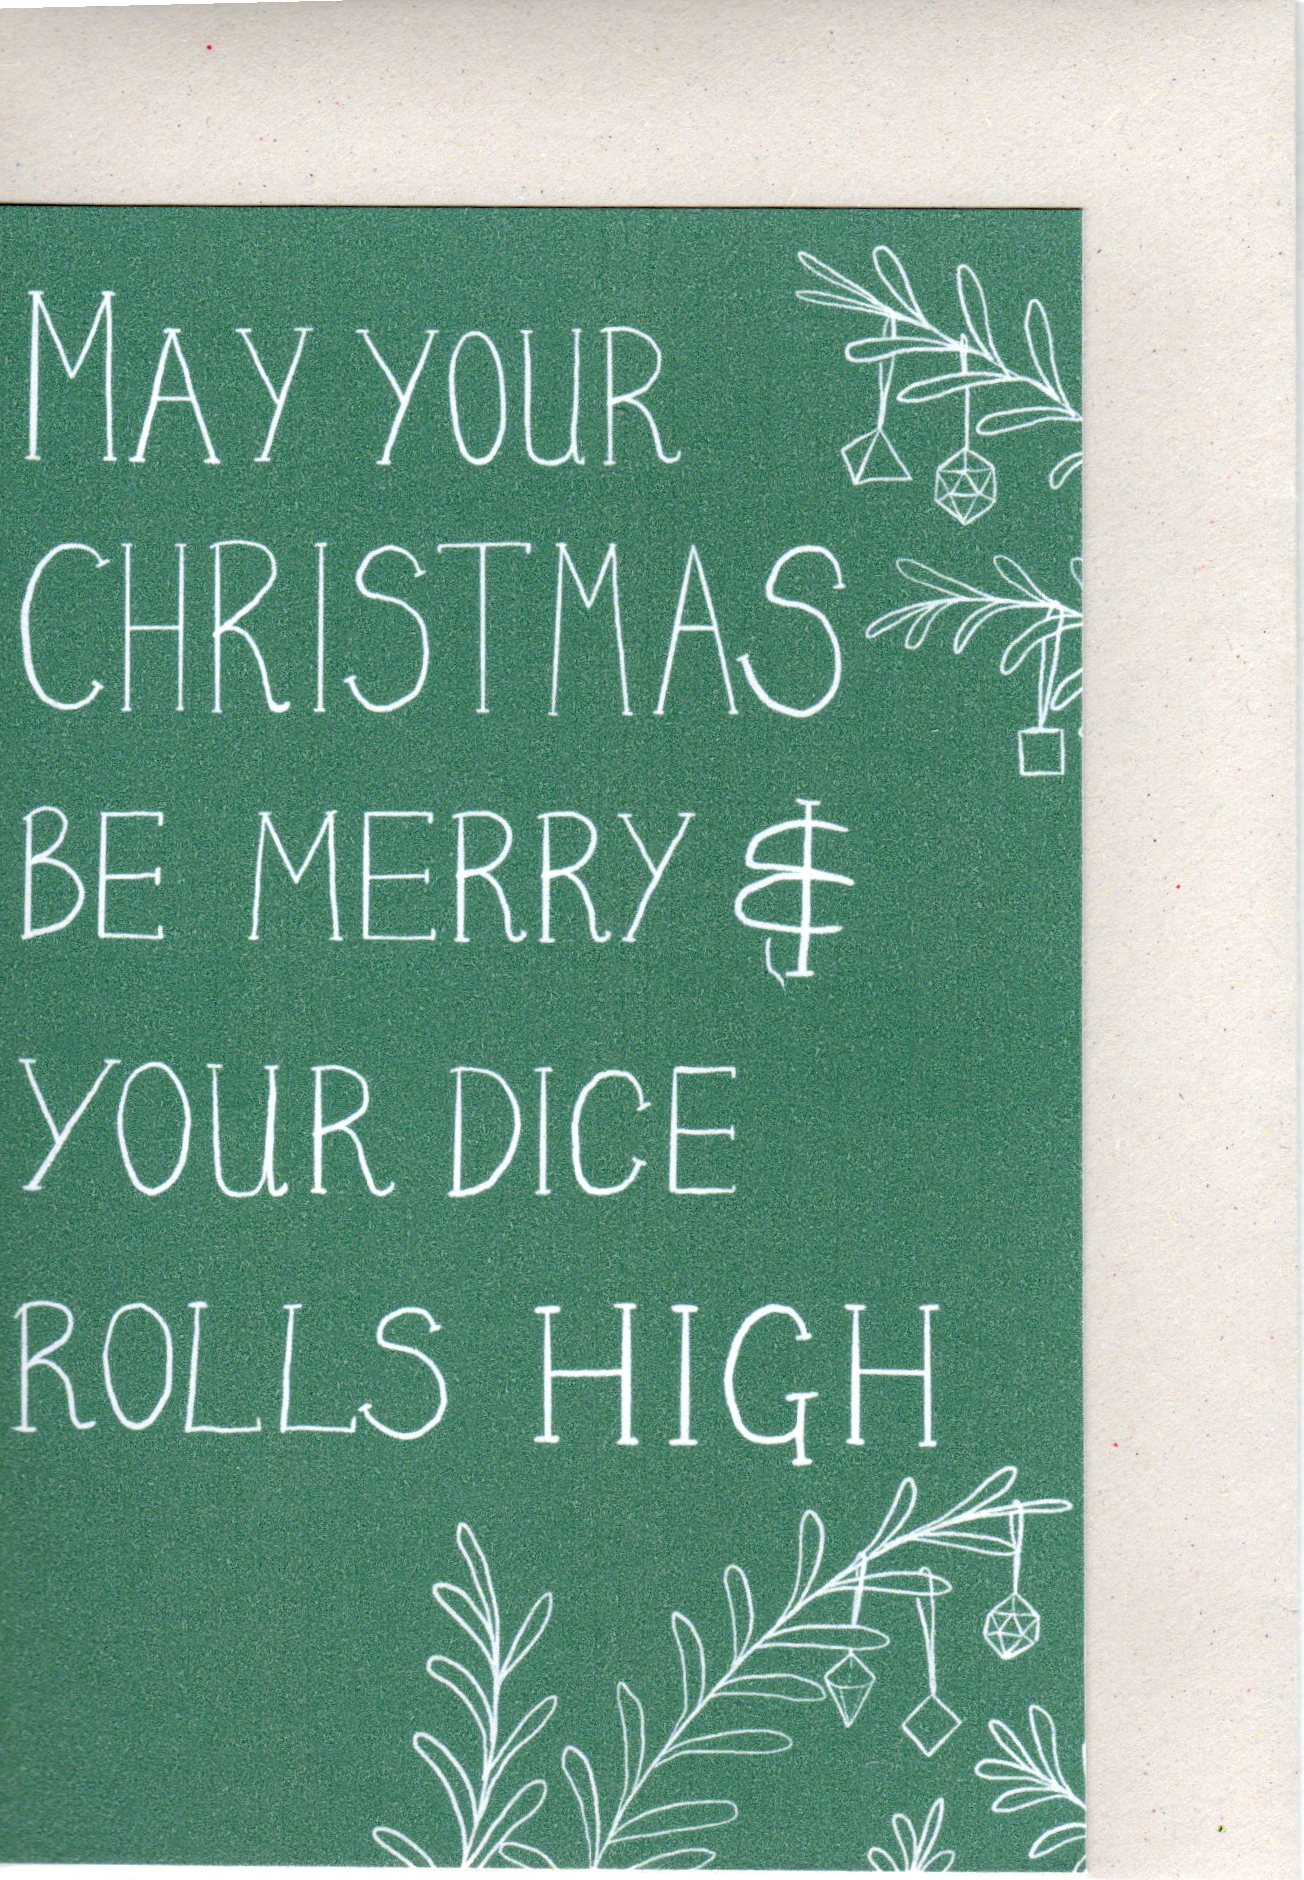 MAY YOUR
CHRISTMAS
BE MERRY &
YOUR DICE
ROLLS HIGH